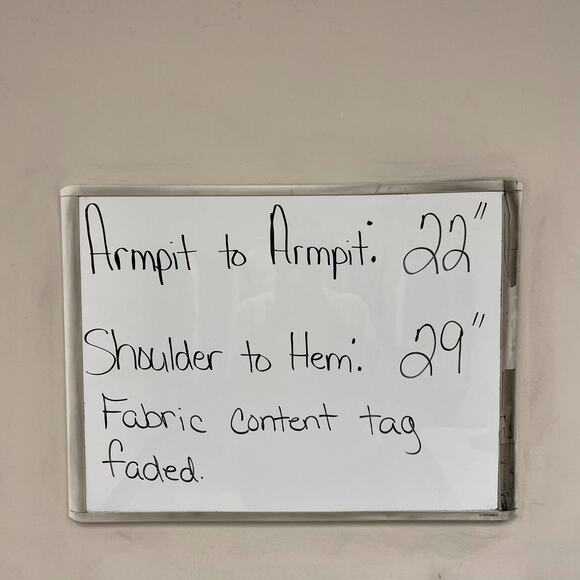 Armpit to Armpit: 22"
Shoulder to Hem: 29"
Fabric content tag
faded.